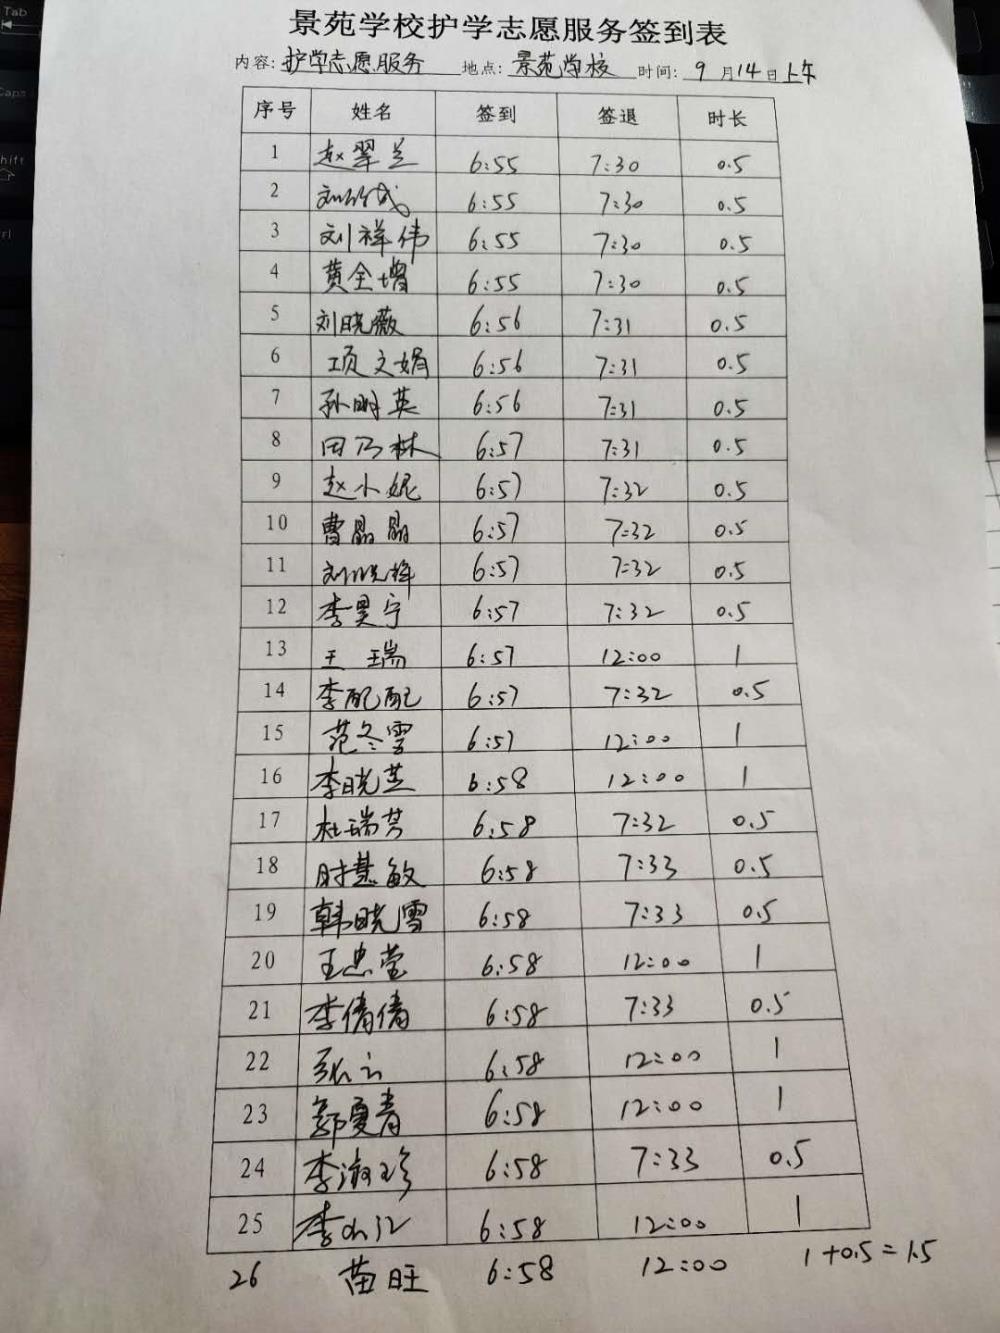 景苑学校护学志愿服务签到表
内容: 护学志愿服务 地点: 景苑学校 时间: 9月14日上午
序号 姓名 签到 签退 时长
1 赵翠兰 6:55 7:30 0.5
2 刘 成 6:55 7:30 0.5
3 刘祥伟 6:55 7:30 0.5
4 黄全增 6:55 7:30 0.5
5 刘晓薇 6:56 7:31 0.5
6 项文娟 6:56 7:31 0.5
7 孙明英 6:56 7:31 0.5
8 田乃林 6:57 7:31 0.5
9 赵小妮 6:57 7:32 0.5
10 曹晶晶 6:57 7:32 0.5
11 刘晓 6:57 7:32 0.5
12 李昊宁 6:57 7:32 0.5
13 王瑞 6:57 12:00 1
14 李配配 6:57 7:32 0.5
15 范冬雪 6:57 12:00 1
16 李晓芝 6:58 12:00 1
17 杜瑞芳 6:58 7:32 0.5
18 时慧敏 6:58 7:33 0.5
19 韩晓雪 6:58 7:33 0.5
20 王忠莹 6:58 12:00 1
21 李倩倩 6:58 7:33 0.5
22 张云 6:58 12:00 1
23 郭夏青 6:58 12:00 1
24 李淑珍 6:58 7:33 0.5
25 李 6:58 12:00 1
26 苗旺 6:58 12:00 1+0.5=1.5
Tab
Caps
hift
rl